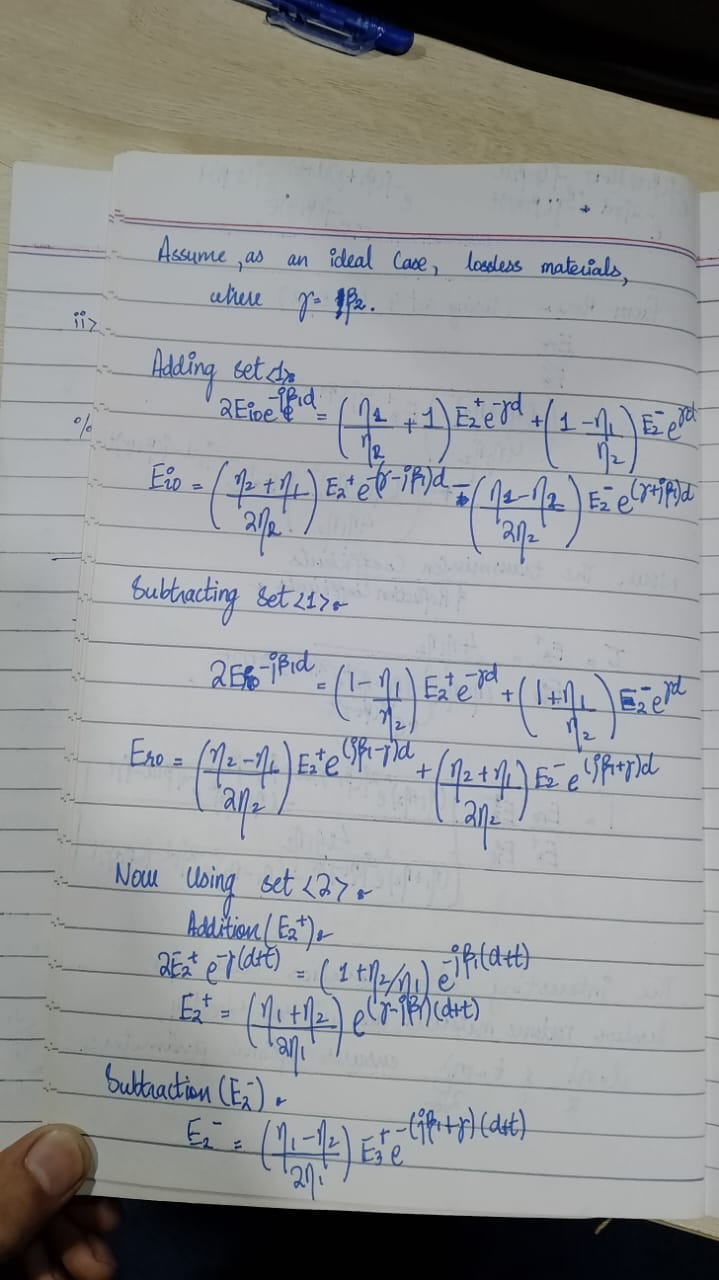 Assume, as an ideal case, lossless materials,
where γ = jβ₂.
ii>
Adding set <1>
%
2Eioe^(-jβ₁d) = (η₁/η₂ + 1) E₂⁺e^(-γd) + (1 - η₁/η₂) E₂⁻e^(γd)
Eio = ((η₂ + η₁)/2η₂) E₂⁺e^(-(γ-jβ₁)d) - ((η₁ - η₂)/2η₂) E₂⁻e^((γ+jβ₁)d)
Subtracting set <1>
2Ero^(-jβ₁d) = (1 - η₁/η₂) E₂⁺e^(-γd) + (1 + η₁/η₂) E₂⁻e^(γd)
Ero = ((η₂ - η₁)/2η₂) E₂⁺e^((jβ₁-γ)d) + ((η₂ + η₁)/2η₂) E₂⁻e^((jβ₁+γ)d)
Now Using set <2>
Addition (E₂⁺)
2E₂⁺e^(-γ(d+t)) = (1 + η₂/η₁) e^(-jβ₁(d+t))
E₂⁺ = ((η₁ + η₂)/2η₁) e^((γ-jβ₁)(d+t))
Subtraction (E₂⁻)
E₂⁻ = ((η₁ - η₂)/2η₁) E₃⁺e^(-(jβ₁+γ)(d+t))